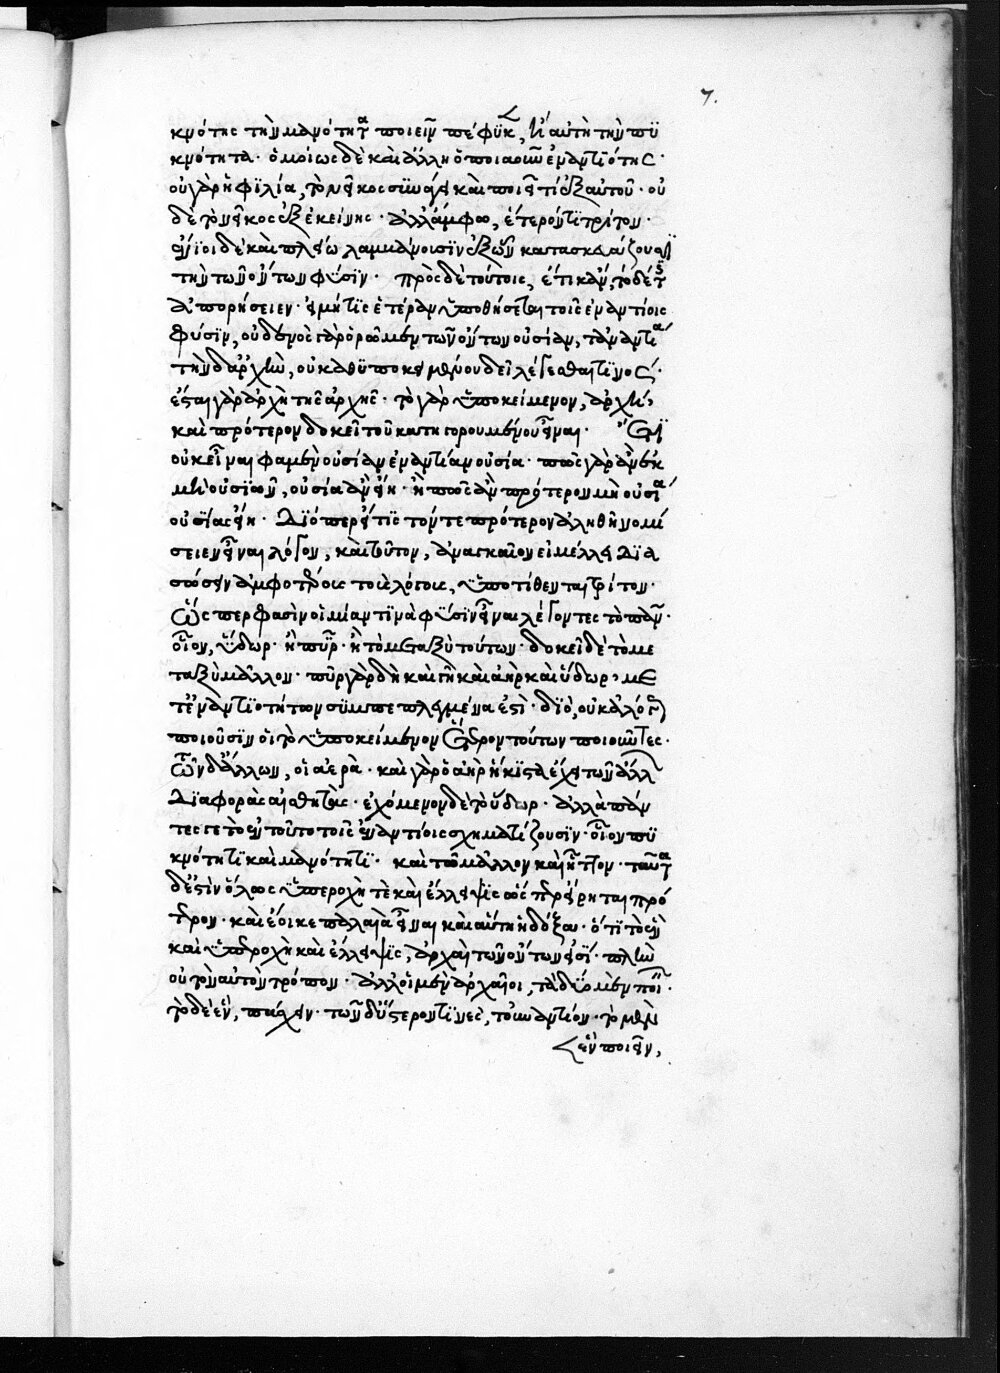 7.
κνότης τὴν μανότητα ποιεῖν πέφυκ, ἢ αὐτὴ τὴν πυ
κνότητα· ὁμοίως δὲ καὶ ἄλλη ὁποιαοῦν ἐναντιότης·
οὐ γὰρ ἡ φιλία, τὸ νεῖκος συνάγει καὶ ποιεῖ τί ἐξ αὐτοῦ· οὐ
δὲ τὸ νεῖκος ἐξ ἐκείνης· ἀλλ' ἄμφω, ἕτερόν τι τρίτον·
ἔνιοι δὲ καὶ πλείω λαμβάνουσιν ἐξ ὧν κατασκευάζουσι
τὴν τῶν ὄντων φύσιν· πρὸς δὲ τούτοις, ἔτι κἄν, τόδέ τις
ἀπορήσειεν· εἰ μή τις ἑτέραν ὑποθήσεται τοῖς ἐναντίοις
φύσιν, οὐδενὸς γὰρ ὁρῶμεν τῶν ὄντων οὐσίαν, τἀναντία
τὴν δ' ἀρχὴν, οὐ καθ' ὑποκειμένου δεῖ λέγεσθαι τινος·
ἔσται γὰρ ἀρχὴ τῆς ἀρχῆς· τὸ γὰρ ὑποκείμενον, ἀρχὴ,
καὶ πρότερον δοκεῖ τοῦ κατηγορουμένου εἶναι· Ἔτι
οὐκ εἶναι φαμὲν οὐσίαν ἐναντίαν οὐσία· πῶς γὰρ ἂν ἐκ
μὴ οὐσιῶν, οὐσία ἂν εἴη· ἢ πῶς ἂν πρότερον μὴ οὐσία
οὐσίας εἴη· Διόπερ εἴ τις τόν τε πρότερον ἀληθῆ νομί
σειεν εἶναι λόγον, καὶ τοῦτον, ἀναγκαῖον εἰ μέλλει δια
σώσειν ἀμφοτέρους τοὺς λόγους, ὑποτίθεσθαι τρίτον·
ὥς περ φασὶν οἱ μίαν τινὰ φύσιν εἶναι λέγοντες τὸ πᾶν·
οἷον, ὕδωρ· ἢ πῦρ· ἢ τὸ μεταξὺ τούτων· δοκεῖ δὲ τὸ με
ταξὺ μᾶλλον· πῦρ γὰρ δὴ καὶ γῆ καὶ ἀὴρ καὶ ὕδωρ, με
τ' ἐναντιοτήτων συμπεπλεγμένα ἐστὶ· διὸ, οὐκ ἀλόγως
ποιοῦσιν οἱ τὸ ὑποκείμενον ἕτερον τούτων ποιοῦντες·
τῶν δ' ἄλλων, οἱ ἀέρα· καὶ γὰρ ὁ ἀὴρ ἥκιστα ἔχει τῶν ἄλλ
διαφορὰς αἰσθητὰς· ἐχόμενον δὲ τὸ ὕδωρ· ἀλλὰ πάν
τες γε τὸ ἓν τοῦτο τοῖς ἐναντίοις σχηματίζουσιν· οἷον πυ
κνότητι καὶ μανότητι· καὶ τῶ μᾶλλον καὶ ἧττον· ταῦτα
δ' ἐστὶν ὅλως ὑπεροχὴ τὲ καὶ ἔλλειψις ὡς περ εἴρηται πρό
τερον· καὶ ἔοικε παλαιὰ εἶναι καὶ αὕτη ἡ δόξα· ὅτι τὸ ἓν
καὶ ὑπεροχὴ καὶ ἔλλειψις, ἀρχαὶ τῶν ὄντων εἰσί· πλὴν
οὐ τὸν αὐτὸν τρόπον· ἀλλ' οἱ μὲν ἀρχαῖοι, τὰ δύο μὲν ποι·
τὸ δὲ ἓν, πάσχειν· τῶν δ' ὑστέρων τινὲς, τοὐναντίον· τὸ μὲν
ἓν ποιεῖν,